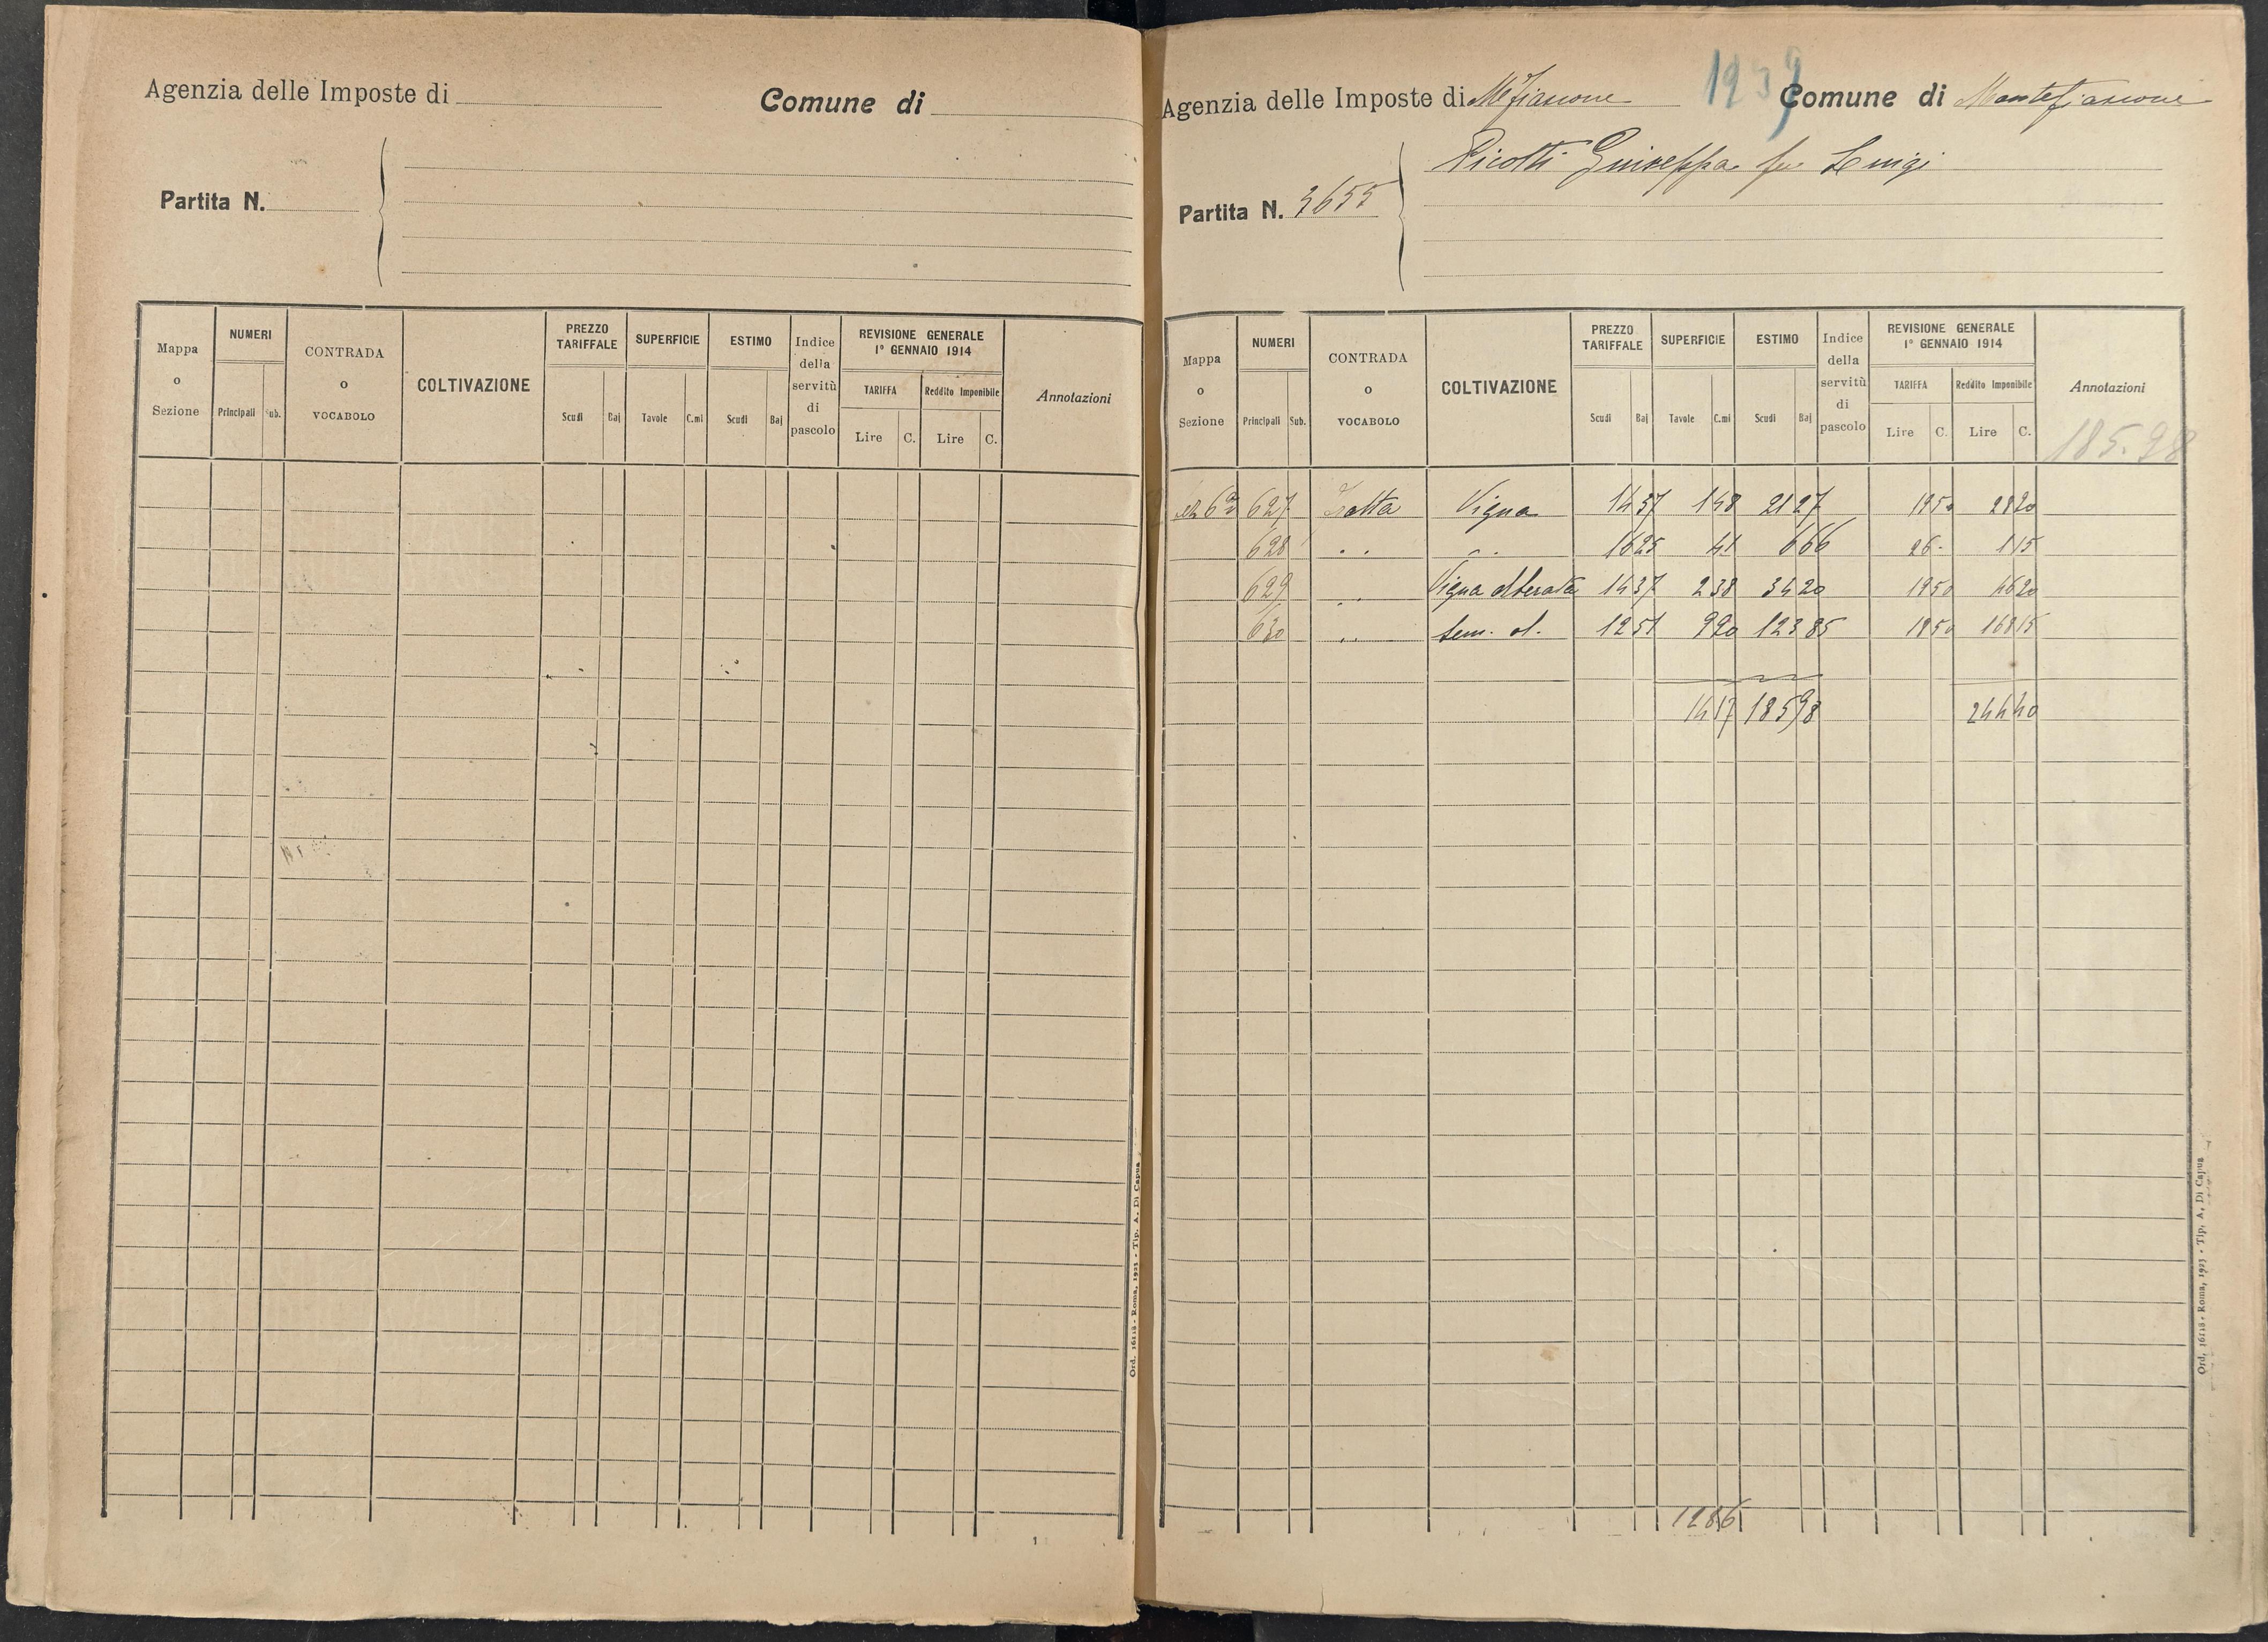 Agenzia delle Imposte di
Comune di
Partita N.
Mappa o Sezione
NUMERI
Principali Sub.
CONTRADA o VOCABOLO
COLTIVAZIONE
PREZZO TARIFFALE
Scudi Baj
SUPERFICIE
Tavole C.mi
ESTIMO
Scudi Baj
Indice della servitù di pascolo
REVISIONE GENERALE
1° GENNAIO 1914
TARIFFA Reddito Imponibile
Lire C. Lire C.
Annotazioni
Ord. 16118 - Roma, 1923 - Tip. A. Di Capua
1
1939
Agenzia delle Imposte di M.fiascone Comune di Montefiascone
Picotti Giuseppa fu Luigi
Partita N. 3655
Mappa o Sezione
NUMERI
Principali Sub.
CONTRADA o VOCABOLO
COLTIVAZIONE
PREZZO TARIFFALE
Scudi Baj
SUPERFICIE
Tavole C.mi
ESTIMO
Scudi Baj
Indice della servitù di pascolo
REVISIONE GENERALE
1° GENNAIO 1914
TARIFFA Reddito Imponibile
Lire C. Lire C.
Annotazioni
185.98
6a 627 Vigna 14 37 1 48 21 27 19 50 28 20
628 " " " " 16 25 41 6 66 26 -
629 " " Vigna olberata 14 37 2 38 34 20 19 50 46 20
630 " " Sem. ol. 12 51 9 90 123 85 18 50 168 15
14 17 185 98 244 40
1286
Ord. 16118 - Roma, 1923 - Tip. A. Di Capua